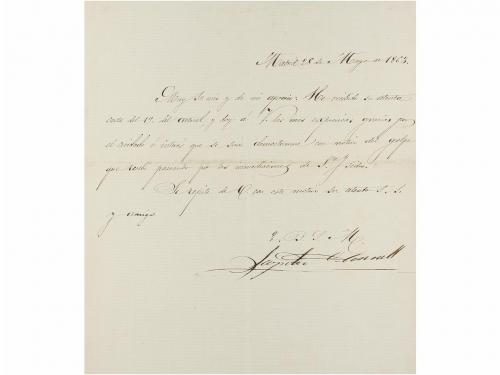 Madrid 28 de Mayo de 1863.
Muy Sr mio y de mi aprecio: He recibido su atenta
carta del 19 del actual, y doy á V. las mas espresivas gracias por
el cuidado é interés que se sirve demostrarme con motivo del golpe
que recibí paseando por las inmediaciones de
Se repite de V. con este motivo su atento S. S.
y amigo
Q. B. S. M.
Leopoldo O'Donnell